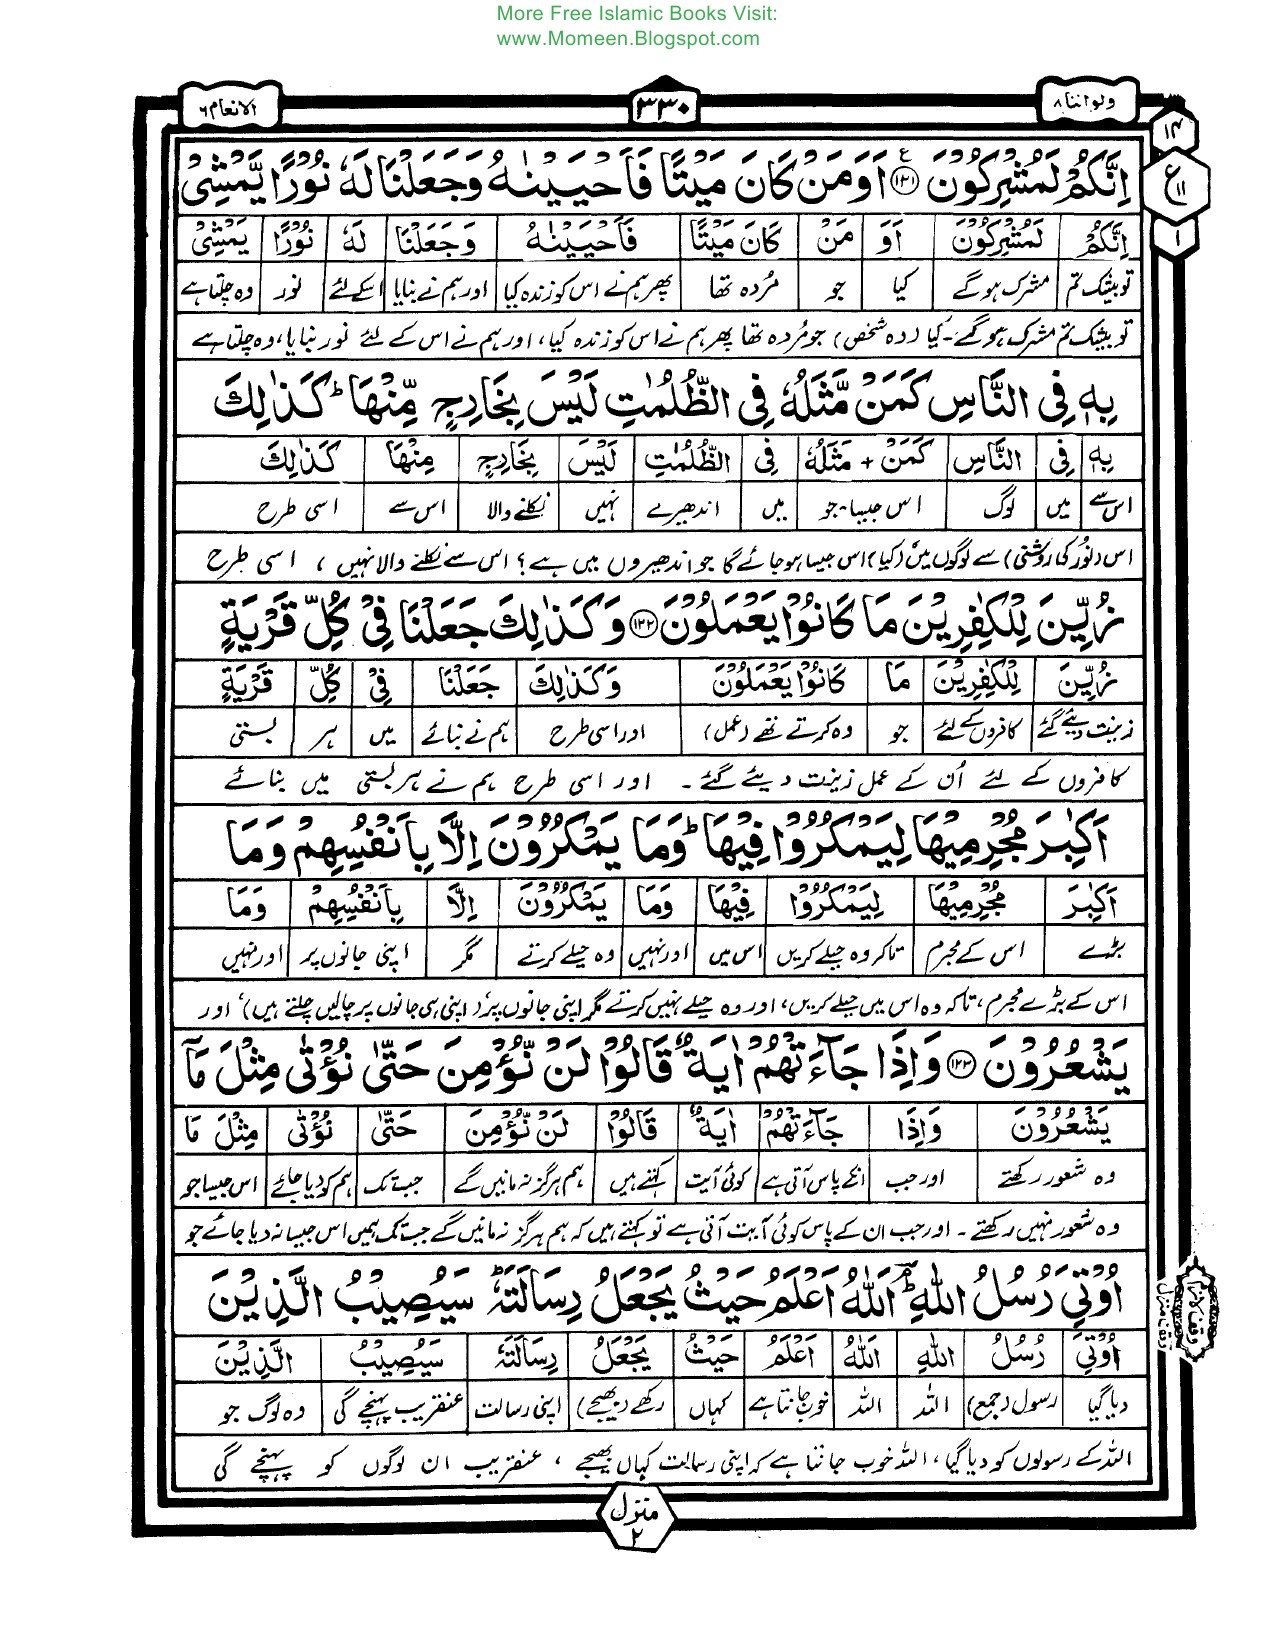 More Free Islamic Books Visit:
www.Momeen.Blogspot.com
ولواننا ۸
۳۳۰
الانعام ۶
۱۴
ع ۱۱
۱
اِنَّكُمْ لَمُشْرِكُوْنَ ۱۲۱ اَوَمَنْ كَانَ مَيْتًا فَاَحْيَيْنٰهُ وَجَعَلْنَا لَهٗ نُوْرًا يَّمْشِيْ
اِنَّكُمْ لَمُشْرِكُوْنَ اَوَ مَنْ كَانَ مَيْتًا فَاَحْيَيْنٰهُ وَجَعَلْنَا لَهٗ نُوْرًا يَمْشِيْ
تو بیشک تم مشرک ہوگے کیا جو مُردہ تھا پھر ہم نے اس کو زندہ کیا اور ہم نے بنایا اسکے لئے نور وہ چلتا ہے
تو بیشک تم مشرک ہوگے۔ کیا (وہ شخص) جو مُردہ تھا پھر ہم نے اس کو زندہ کیا، اور ہم نے اس کے لئے نور بنایا، وہ چلتا ہے
بِهٖ فِي النَّاسِ كَمَنْ مَّثَلُهٗ فِي الظُّلُمٰتِ لَيْسَ بِخَارِجٍ مِّنْهَا ؕ كَذٰلِكَ
بِهٖ فِي النَّاسِ كَمَنْ + مَثَلُهٗ فِي الظُّلُمٰتِ لَيْسَ بِخَارِجٍ مِنْهَا كَذٰلِكَ
اس سے میں لوگ اس جیسا۔جو میں اندھیرے نہیں نکلنے والا اس سے اسی طرح
اس (نور کی روشنی) سے لوگوں میں (کیا) اس جیسا ہو جائے گا جو اندھیروں میں ہے؟ اس سے نکلنے والا نہیں، اسی طرح
زُيِّنَ لِلْكٰفِرِيْنَ مَا كَانُوْا يَعْمَلُوْنَ ۱۲۲ وَكَذٰلِكَ جَعَلْنَا فِيْ كُلِّ قَرْيَةٍ
زُيِّنَ لِلْكٰفِرِيْنَ مَا كَانُوْا يَعْمَلُوْنَ وَكَذٰلِكَ جَعَلْنَا فِيْ كُلِّ قَرْيَةٍ
زینت دیئے گئے کافروں کے لئے جو وہ کرتے تھے (عمل) اور اسی طرح ہم نے بنائے میں ہر بستی
کافروں کے لئے اُن کے عمل زینت دیئے گئے۔ اور اسی طرح ہم نے ہر بستی میں بنائے
اَكٰبِرَ مُجْرِمِيْهَا لِيَمْكُرُوْا فِيْهَا ؕ وَمَا يَمْكُرُوْنَ اِلَّا بِاَنْفُسِهِمْ وَمَا
اَكٰبِرَ مُجْرِمِيْهَا لِيَمْكُرُوْا فِيْهَا وَمَا يَمْكُرُوْنَ اِلَّا بِاَنْفُسِهِمْ وَمَا
بڑے اس کے مجرم تاکہ وہ حیلے کریں اس میں اور نہیں وہ حیلے کرتے مگر اپنی جانوں پر اور نہیں
اس کے بڑے مجرم، تاکہ وہ اس میں حیلے کریں، اور وہ حیلے نہیں کرتے مگر اپنی جانوں پر (اپنی ہی جانوں پر چالیں چلتے ہیں)، اور
يَشْعُرُوْنَ ۱۲۳ وَاِذَا جَآءَتْهُمْ اٰيَةٌ قَالُوْا لَنْ نُّؤْمِنَ حَتّٰى نُؤْتٰى مِثْلَ مَآ
يَشْعُرُوْنَ وَاِذَا جَآءَتْهُمْ اٰيَةٌ قَالُوْا لَنْ نُّؤْمِنَ حَتّٰى نُؤْتٰى مِثْلَ مَا
وہ شعور رکھتے اور جب انکے پاس آتی ہے کوئی آیت کہتے ہیں ہم ہرگز نہ مانیں گے جب تک ہم کو دیا جائے اس جیسا جو
وہ شعور نہیں رکھتے۔ اور جب ان کے پاس کوئی آیت آتی ہے تو کہتے ہیں کہ ہم ہرگز نہ مانیں گے جب تک ہمیں اس جیسا نہ دیا جائے جو
اُوْتِيَ رُسُلُ اللّٰهِ ؕ اَللّٰهُ اَعْلَمُ حَيْثُ يَجْعَلُ رِسَالَتَهٗ ؕ سَيُصِيْبُ الَّذِيْنَ
اُوْتِيَ رُسُلُ اللّٰهِ اَللّٰهُ اَعْلَمُ حَيْثُ يَجْعَلُ رِسَالَتَهٗ سَيُصِيْبُ الَّذِيْنَ
دیا گیا رسول (جمع) اللہ اللہ خوب جانتا ہے کہاں رکھے (بھیجے) اپنی رسالت عنقریب پہنچے گی وہ لوگ جو
اللہ کے رسولوں کو دیا گیا، اللہ خوب جانتا ہے کہ اپنی رسالت کہاں بھیجے، عنقریب ان لوگوں کو پہنچے گی
منزل ۲